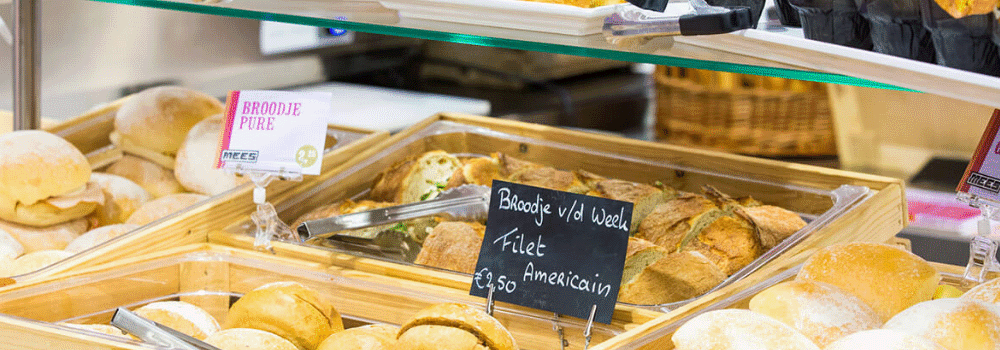 BROODJE
PURE
MEES
Broodje v/d Week
Filet
Americain
€2,50
MEES